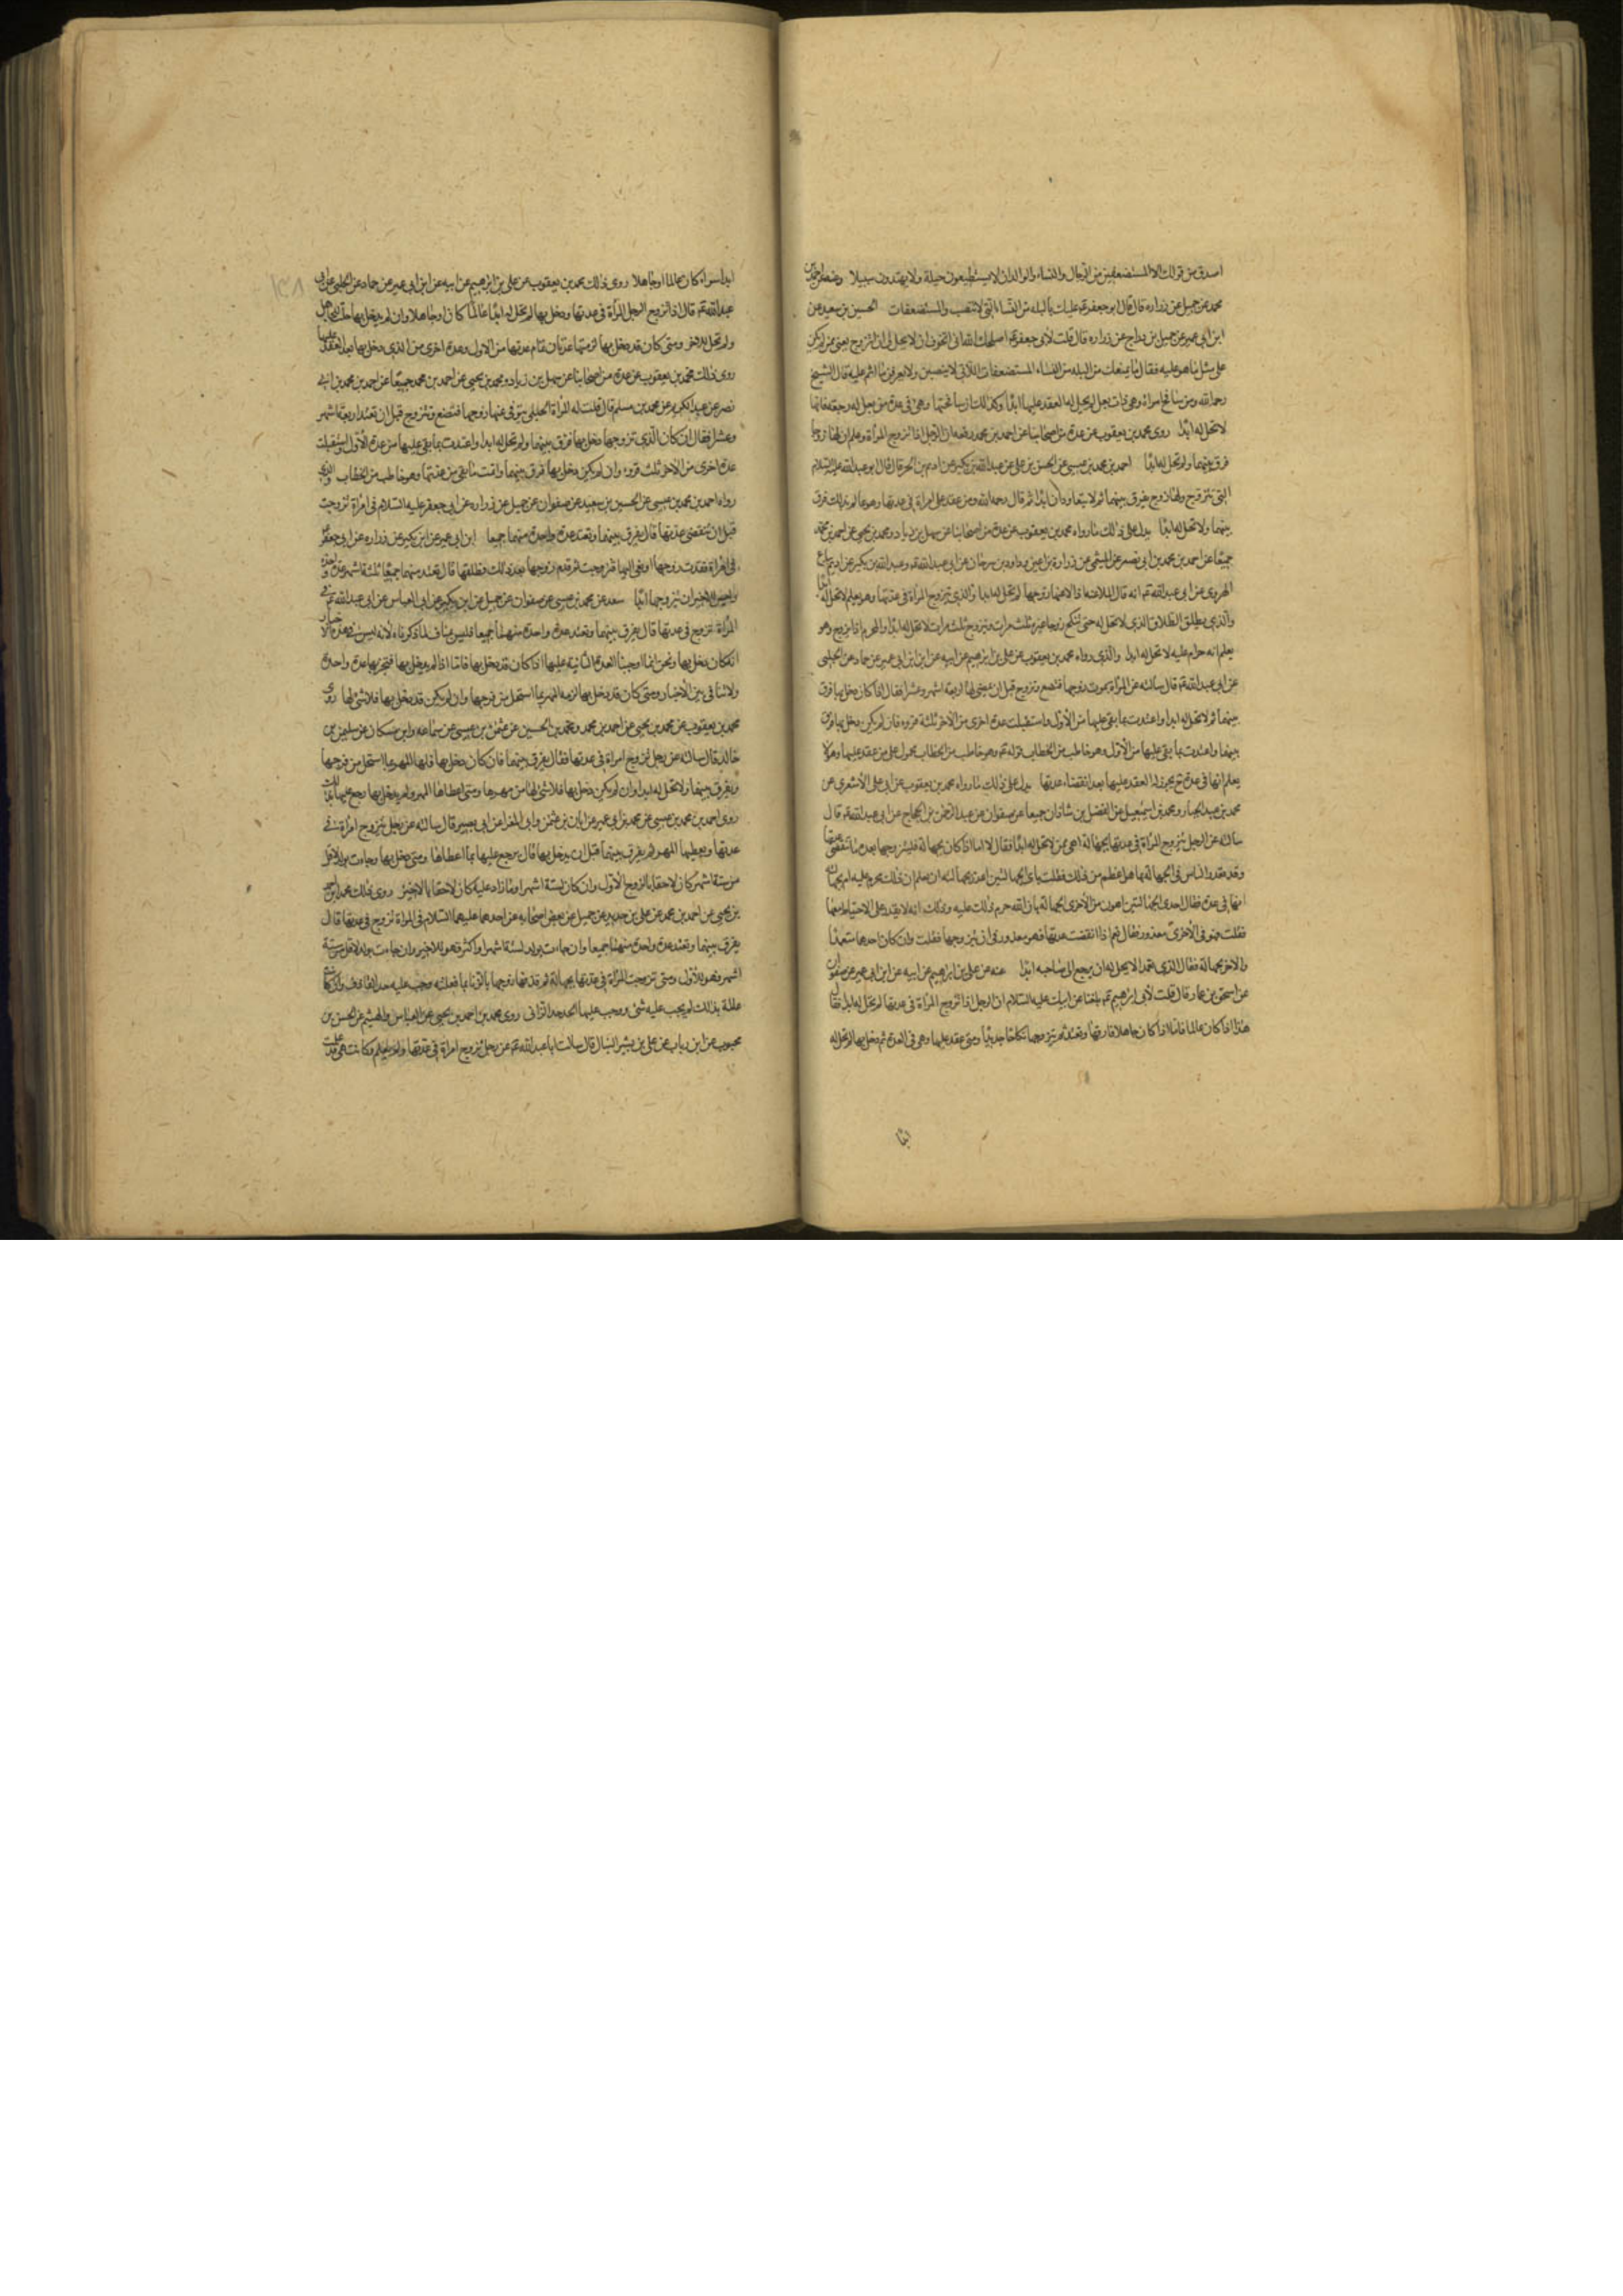 اصدق من قولك الا المستضعفين من الرجال والنساء والولدان لا يستطيعون حيلة ولا يهتدون سبيلا وعنه عن احمد بن
محمد عن جميل عن زراره قال قال ابو جعفر عم عليك بالبله من النساء التي لا تنصب والمستضعفات الحسين بن سعيد عن
ابن ابي عمير عن جميل بن دراج عن زراره قال قلت لأبي جعفر عم اصلحك الله اني اخوف ان لا يحل لي ان اتزوج يعني ممن لم يكن
على مثل ما هو عليه فقال ما يمنعك من البله من النساء المستضعفات اللاتي لا ينصبن ولا يعرفن ما انتم عليه قال الشيخ
رحمه الله ومن سافح امراة وهي ذات بعل لم يحل له العقد عليها ابدا وكذلك ان سافحها وهي في عدة من بعل له رجعة فانها
لا تحل له ابدا روى محمد بن يعقوب عن عدة من اصحابنا عن احمد بن محمد رفعه ان الرجل اذا تزوج المرأة وعلم ان لها زوجا
فرق بينهما ولم تحل له ابدا احمد بن محمد بن عيسى عن الحسن بن علي عن عبدالله بن بكير عن اديم بن الحر قال قال ابو عبدالله عليه السلام
التي تتزوج ولها زوج يفرق بينهما ثم لا يتعاودان ابدا ثم قال رحمه الله ومن عقد على امراة في عدتها وهو عالم بذلك فرق
بينهما ولا تحل له ابدا يدل على ذلك ما رواه محمد بن يعقوب عن عدة من اصحابنا عن سهل بن زياد ومحمد بن يحيى عن احمد بن محمد
جميعا عن احمد بن محمد بن ابي نصر عن المثنى عن زرارة بن اعين وداود بن سرحان عن ابي عبدالله عم وعبدالله بن بكير عن اديم بياع
الهروي عن ابي عبدالله عم انه قال الملاعنة اذا لاعنها زوجها لم تحل له ابدا والذي يتزوج المرأة في عدتها وهو يعلم لا تحل له ابدا
والذي يطلق الطلاق الذي لا تحل له حتى تنكح زوجا غيره ثلث مرات وتزوج ثلث مرات لا تحل له ابدا والمحرم اذا تزوج وهو
يعلم انه حرام عليه لا تحل له ابدا والذي رواه محمد بن يعقوب عن علي بن ابرهيم عن ابيه عن ابن ابي عمير عن حماد عن الحلبي
عن ابي عبدالله عم قال سالته عن المرأة يموت زوجها فتضع وتزوج قبل ان يمضي لها اربعة اشهر وعشرا فقال اذا كان دخل بها فرق
بينهما ثم لا تحل له ابدا واعتدت بما بقي عليها من الأول واستقبلت عدة اخرى من الاخر ثلثة قروء فان لم يكن دخل بها فرق
بينهما واعتدت بما بقي عليها من الأول وهو خاطب من الخطاب قوله عم وهو خاطب من الخطاب محمول على من عقد عليها وهو لا
يعلم انها في عدة يجوز له العقد عليها بعد انقضاء عدتها يدل على ذلك ما رواه محمد بن يعقوب عن ابي علي الأشعري عن
محمد بن عبد الجبار ومحمد بن اسمعيل عن الفضل بن شاذان جميعا عن صفوان عن عبد الرحمن بن الحجاج عن ابي عبدالله عم قال
سالته عن الرجل يتزوج المرأة في عدتها بجهالة اهي ممن لا تحل له ابدا فقال لا اما اذا كان بجهالة فليتزوجها بعد ما تنقضي عدتها
وقد يعذر الناس في الجهالة بما هو اعظم من ذلك فقلت باي الجهالتين اعذر بجهالته ان يعلم ان ذلك محرم عليه ام بجهالته
انها في عدة فقال احدى الجهالتين اهون من الأخرى الجهالة بان الله حرم ذلك عليه وذلك انه لا يقدر على الاحتياط معها
فقلت هو في الأخرى معذور فقال نعم اذا انقضت عدتها فهو معذور في ان يتزوجها فقلت وان كان احدهما متعمدا
والاخر بجهالة فقال الذي تعمد لا يحل له ان يرجع الى صاحبه ابدا عنه عن علي بن ابرهيم عن ابيه عن ابن ابي عمير عن صفوان
عن اسحق بن عمار قال قلت لأبي ابرهيم عم بلغنا عن ابيك عليه السلام ان الرجل اذا تزوج المرأة في عدتها لم تحل له ابدا فقال
هذا اذا كان عالما فاما اذا كان جاهلا فارقها وتعتد ثم يتزوجها نكاحا جديدا ومتى عقد عليها وهي في العدة ثم دخل بها لم تحل له
ابدا
ابدا سواء كان عالما او جاهلا روى ذلك محمد بن يعقوب عن علي بن ابرهيم عن ابيه عن ابن ابي عمير عن حماد عن الحلبي عن ابي
عبدالله عم قال اذا تزوج الرجل المرأة في عدتها ودخل بها لم تحل له ابدا عالما كان او جاهلا وان لم يدخل بها حلت للجاهل
ولم تحل للاخر ومتى كان قد دخل بها لزمتها عدتان تمام عدتها من الاول وعدة اخرى من الذي دخل بها بعد العقد عليها
روى ذلك محمد بن يعقوب عن عدة من اصحابنا عن سهل بن زياد ومحمد بن يحيى عن احمد بن محمد جميعا عن احمد بن محمد بن ابي
نصر عن عبد الكريم عن محمد بن مسلم قال قلت له المرأة الحبلى يتوفى عنها زوجها فتضع وتتزوج قبل ان تعتد اربعة اشهر
وعشرا فقال ان كان الذي تزوجها دخل بها فرق بينهما ولم تحل له ابدا واعتدت بما بقي عليها من عدة الأول واستقبلت
عدة اخرى من الأخر ثلث قروء وان لم يكن دخل بها فرق بينهما واتمت ما بقي من عدتها وهو خاطب من الخطاب والذي
رواه احمد بن محمد بن عيسى عن الحسين بن سعيد عن صفوان عن جميل عن زراره عن ابي جعفر عليه السلام في امرأة تزوجت
قبل ان تنقضي عدتها قال يفرق بينهما وتعتد عدة واحدة منهما جميعا ابن ابي عمير عن ابن بكير عن زراره عن ابي جعفر عم
في امراة فقدت زوجها او نعي اليها فتزوجت ثم قدم زوجها بعد ذلك فطلقها قال تعتد منهما جميعا ثلثة اشهر عدة واحدة
وليس للاخير ان يتزوجها ابدا سعد عن محمد بن عيسى عن صفوان عن جميل عن ابن بكير عن ابي العباس عن ابي عبدالله عم في
المرأة تزوج في عدتها قال يفرق بينهما وتعتد عدة واحدة منهما جميعا فليس مناف لما ذكرناه لأنه ليس في هذه الأخبار
انه كان دخل بها ونحن انما اوجبنا العدة الثانية عليها اذا كان قد دخل بها فاما اذا لم يدخل بها فتجزيها عدة واحدة
ولا تنافي بين الأخبار ومتى كان قد دخل بها لزمه المهر بما استحل من فرجها وان لم يكن قد دخل بها فلا شئ لها روى
محمد بن يعقوب عن محمد بن يحيى عن احمد بن محمد ومحمد بن الحسين عن عثمن بن عيسى عن سماعه وابن مسكان عن سليمن بن
خالد قال سالته عن رجل تزوج امراة في عدتها فقال يفرق بينهما فان كان دخل بها فلها المهر بما استحل من فرجها
ويفرق بينهما ولا تحل له ابدا وان لم يكن دخل بها فلا شئ لها من مهرها ومتى اعطاها المهر ولم يدخل بها رجع عليها بذلك
روى احمد بن محمد بن عيسى عن محمد بن ابي عمير عن ابان بن عثمن وابي المغرا عن ابي بصير قال سالته عن رجل يتزوج امراة في
عدتها ويعطيها المهر ثم يفرق بينهما قبل ان يدخل بها قال يرجع عليها بما اعطاها ومتى دخل بها وجاءت بولد لاقل
من ستة اشهر كان لاحقا بالزوج الأول وان كان لستة اشهر او ما زاد عليه كان لاحقا بالأخير روى ذلك محمد بن احمد
بن يحيى عن احمد بن محمد عن علي بن حديد عن جميل عن بعض اصحابه عن احدهما عليهما السلام في المراة تزوج في عدتها قال
يفرق بينهما وتعتد عدة واحدة منهما جميعا وان جاءت بولد لستة اشهر او اكثر فهو للاخير وان جاءت بولد لاقل من ستة
اشهر فهو للأول ومتى تزوجت المرأة في عدتها بجهالة ثم قذفها زوجها بالزنا بما فعلته وجب عليه حد القاذف وان كانت
عالمة بذلك لم يجب عليه شئ ووجب عليها الحد حد الزاني روى محمد بن احمد بن يحيى عن العباس والهيثم عن الحسن بن
محبوب عن ابن رياب عن علي بن بشير النبال قال سالت ابا عبدالله عم عن رجل تزوج امراة في عدتها ولم يعلم وكانت هي قد علمت